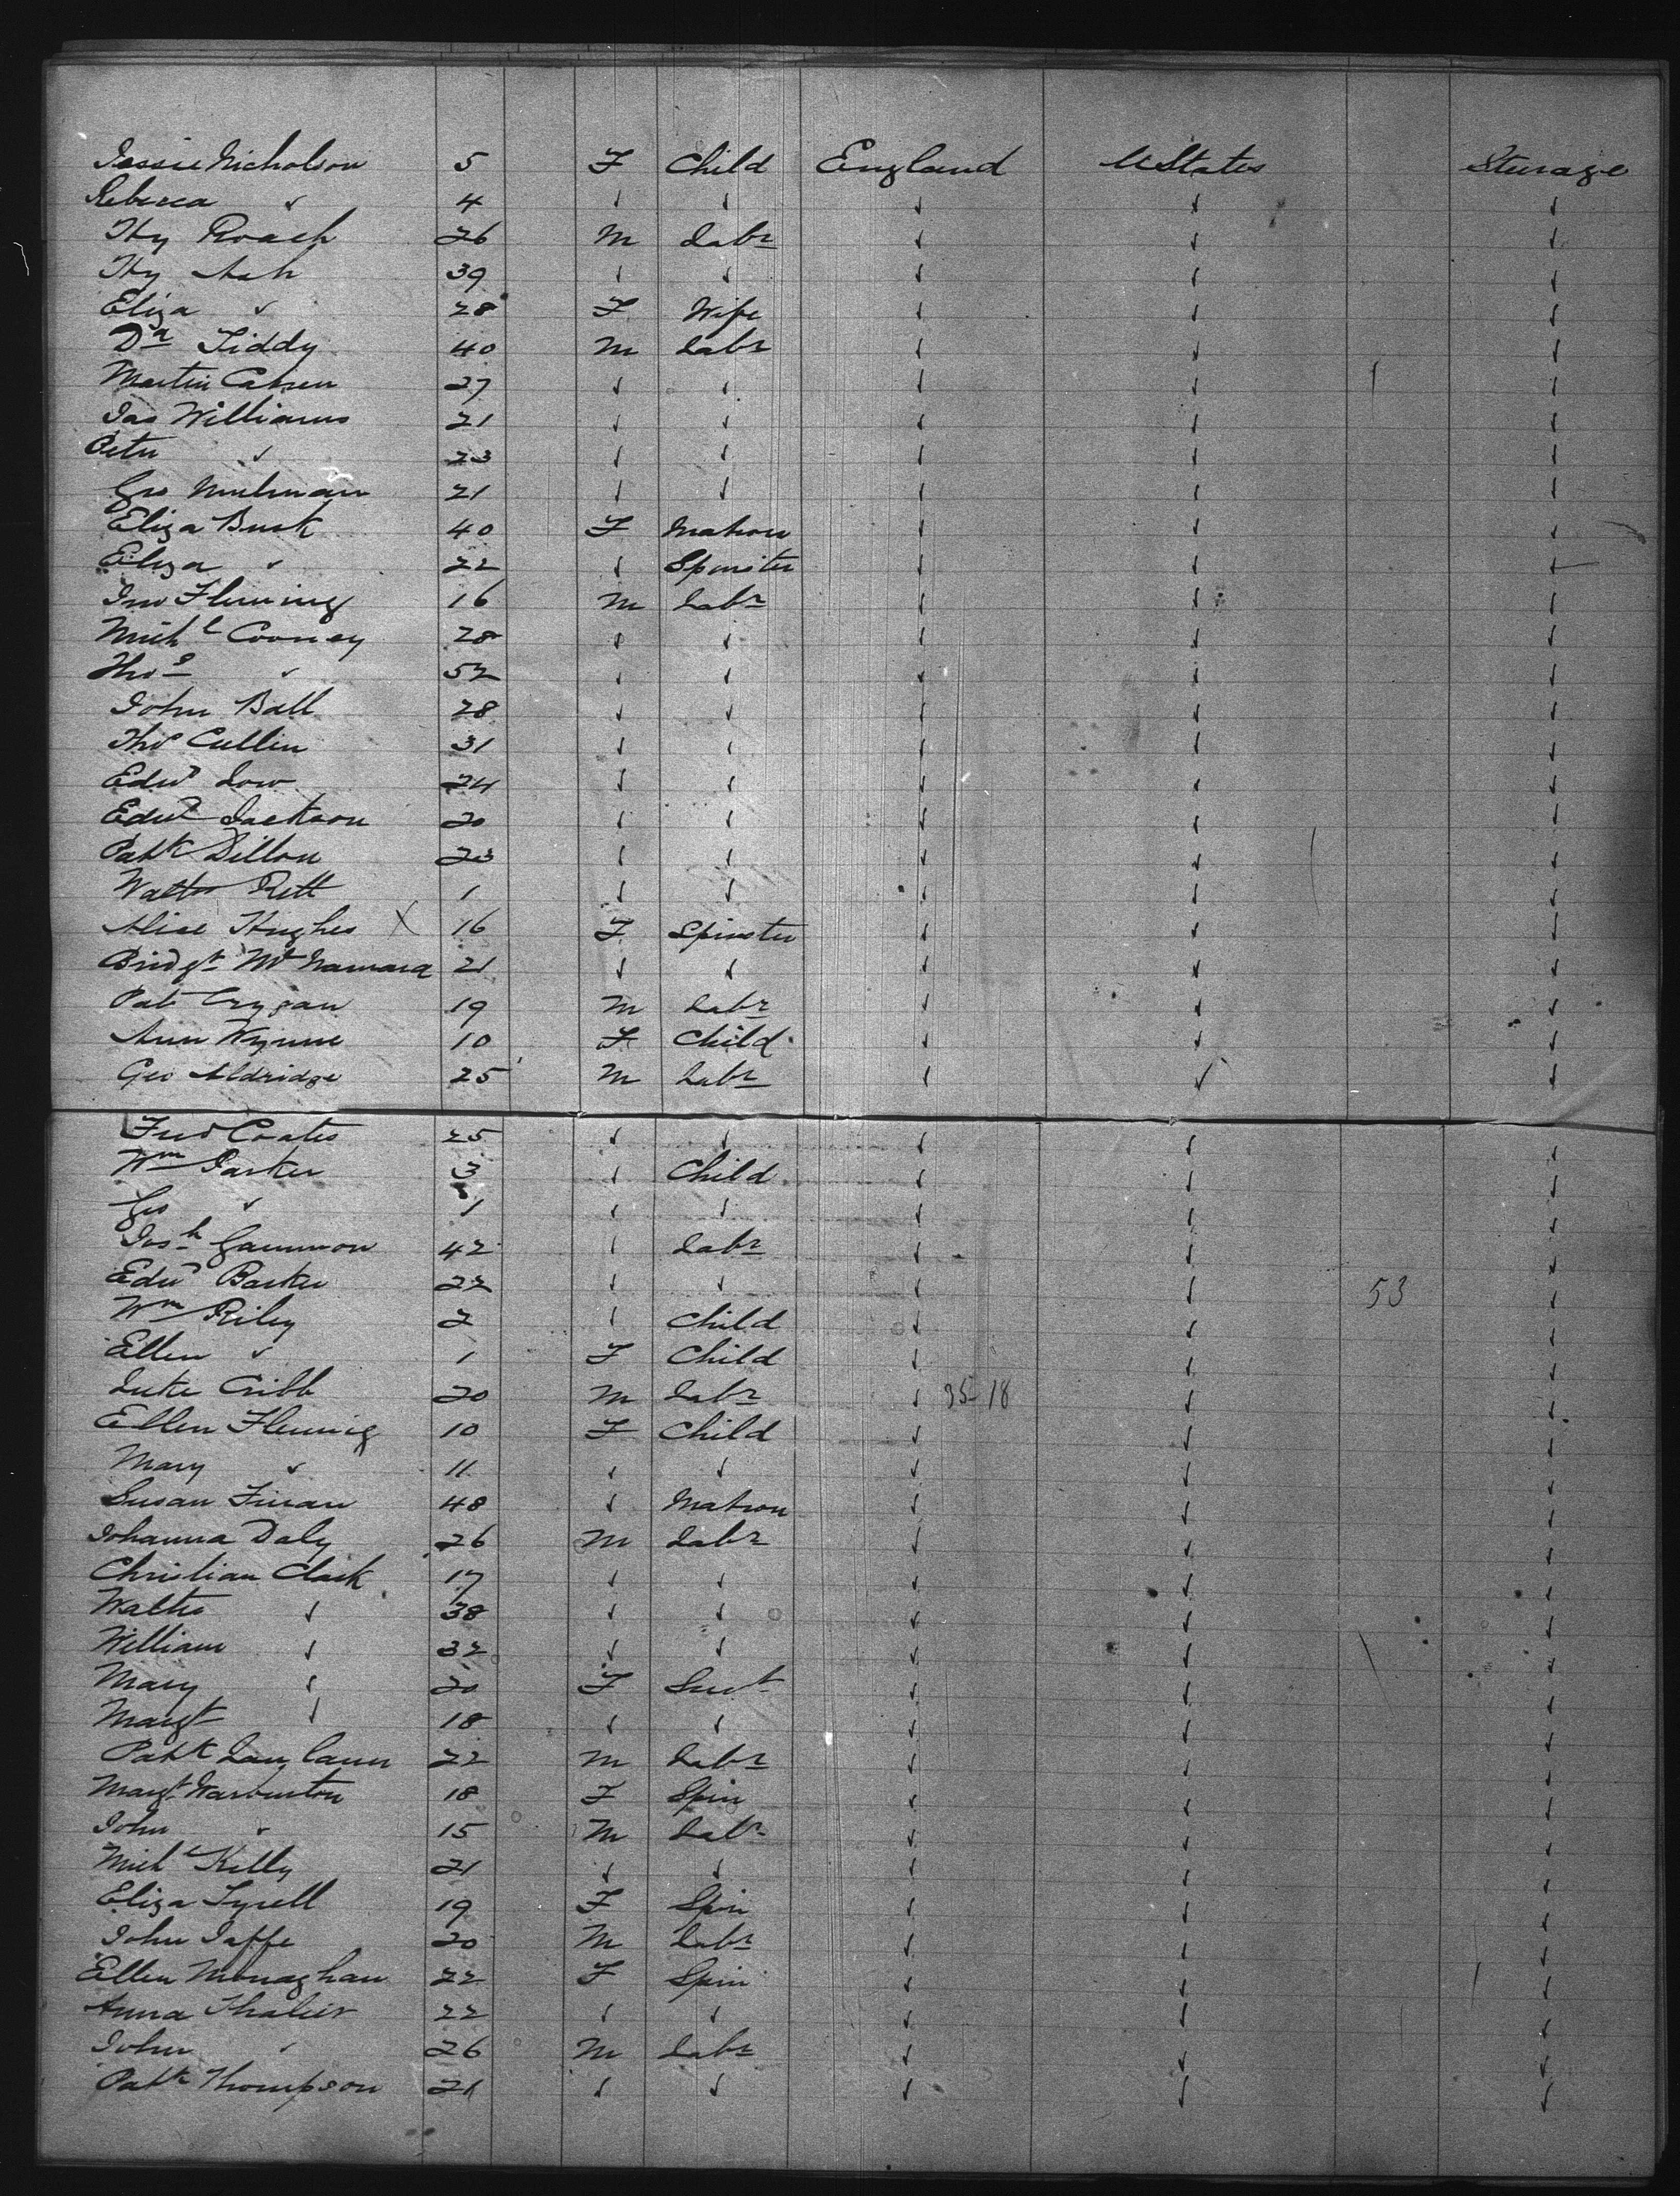 Jessie Nicholson 5 F Child England UStates Sturage
Rebecca ✓ 4 ✓ ✓ ✓ ✓ ✓
Hy Roach 26 M Labr ✓ ✓ ✓
Hy Ash 39 ✓ ✓ ✓ ✓ ✓
Eliza ✓ 28 F Wife ✓ ✓ ✓
Dl Tiddy 40 M Labr ✓ ✓ ✓
Martin 27 ✓ ✓ ✓ ✓ ✓
Jas Williams 21 ✓ ✓ ✓ ✓ ✓
Peter ✓ 23 ✓ ✓ ✓ ✓ ✓
Geo 21 ✓ ✓ ✓ ✓ ✓
Eliza Busk 40 F Matron ✓ ✓ ✓
Eliza ✓ 22 ✓ Spinster ✓ ✓ ✓
Jno Fleming 16 M Labr ✓ ✓ ✓
Michl Cooney 28 ✓ ✓ ✓ ✓ ✓
Thos ✓ 52 ✓ ✓ ✓ ✓ ✓
John Ball 28 ✓ ✓ ✓ ✓ ✓
Thos Cullin 31 ✓ ✓ ✓ ✓ ✓
Edwd Low 24 ✓ ✓ ✓ ✓ ✓
Edwd Jackson 20 ✓ ✓ ✓ ✓ ✓
Patk Dillon 23 ✓ ✓ ✓ ✓ ✓
Walter Rett 1 ✓ ✓ ✓ ✓ ✓
Alice Hughes X 16 F Spinster ✓ ✓ ✓
Bridgt McNamara 21 ✓ ✓ ✓ ✓ ✓
Pat Crygan 19 M Labr ✓ ✓ ✓
Ann Wynne 10 F Child ✓ ✓ ✓
Geo Aldridge 25 M Labr ✓ ✓ ✓
Fred Coates 25 ✓ ✓ ✓ ✓ ✓
Wm Parker 3 ✓ Child ✓ ✓ ✓
Geo ✓ 1 ✓ ✓ ✓ ✓ ✓
Josh Gammon 42 ✓ Labr ✓ ✓ ✓
Edwd Barker 22 ✓ ✓ ✓ ✓ 53 ✓
Wm Riley 2 ✓ Child ✓ ✓ ✓
Ellen ✓ 1 F Child ✓ ✓ ✓
Luke Cribb 20 M Labr ✓ 35-18 ✓ ✓
Ellen Fleming 10 F Child ✓ ✓ ✓
Mary ✓ 11 ✓ ✓ ✓ ✓ ✓
Susan Finan 48 ✓ Matron ✓ ✓ ✓
Johanna Daly 26 M Labr ✓ ✓ ✓
Christian Clark 17 ✓ ✓ ✓ ✓ ✓
Walter ✓ 38 ✓ ✓ ✓ ✓ ✓
William ✓ 32 ✓ ✓ ✓ ✓ ✓
Mary ✓ 20 F Servt ✓ ✓ ✓
Margt ✓ 18 ✓ ✓ ✓ ✓ ✓
Patk 22 M Labr ✓ ✓ ✓
Margt Warburton 18 F Spin ✓ ✓ ✓
John ✓ 15 M Labr ✓ ✓ ✓
Michl Kelly 21 ✓ ✓ ✓ ✓ ✓
Eliza Tyrell 19 F Spin ✓ ✓ ✓
John Jaffe 20 M Labr ✓ ✓ ✓
Ellen Monaghan 22 F Spin ✓ ✓ ✓
Anna 22 ✓ ✓ ✓ ✓ ✓
John ✓ 26 M Labr ✓ ✓ ✓
Patk Thompson 21 ✓ ✓ ✓ ✓ ✓